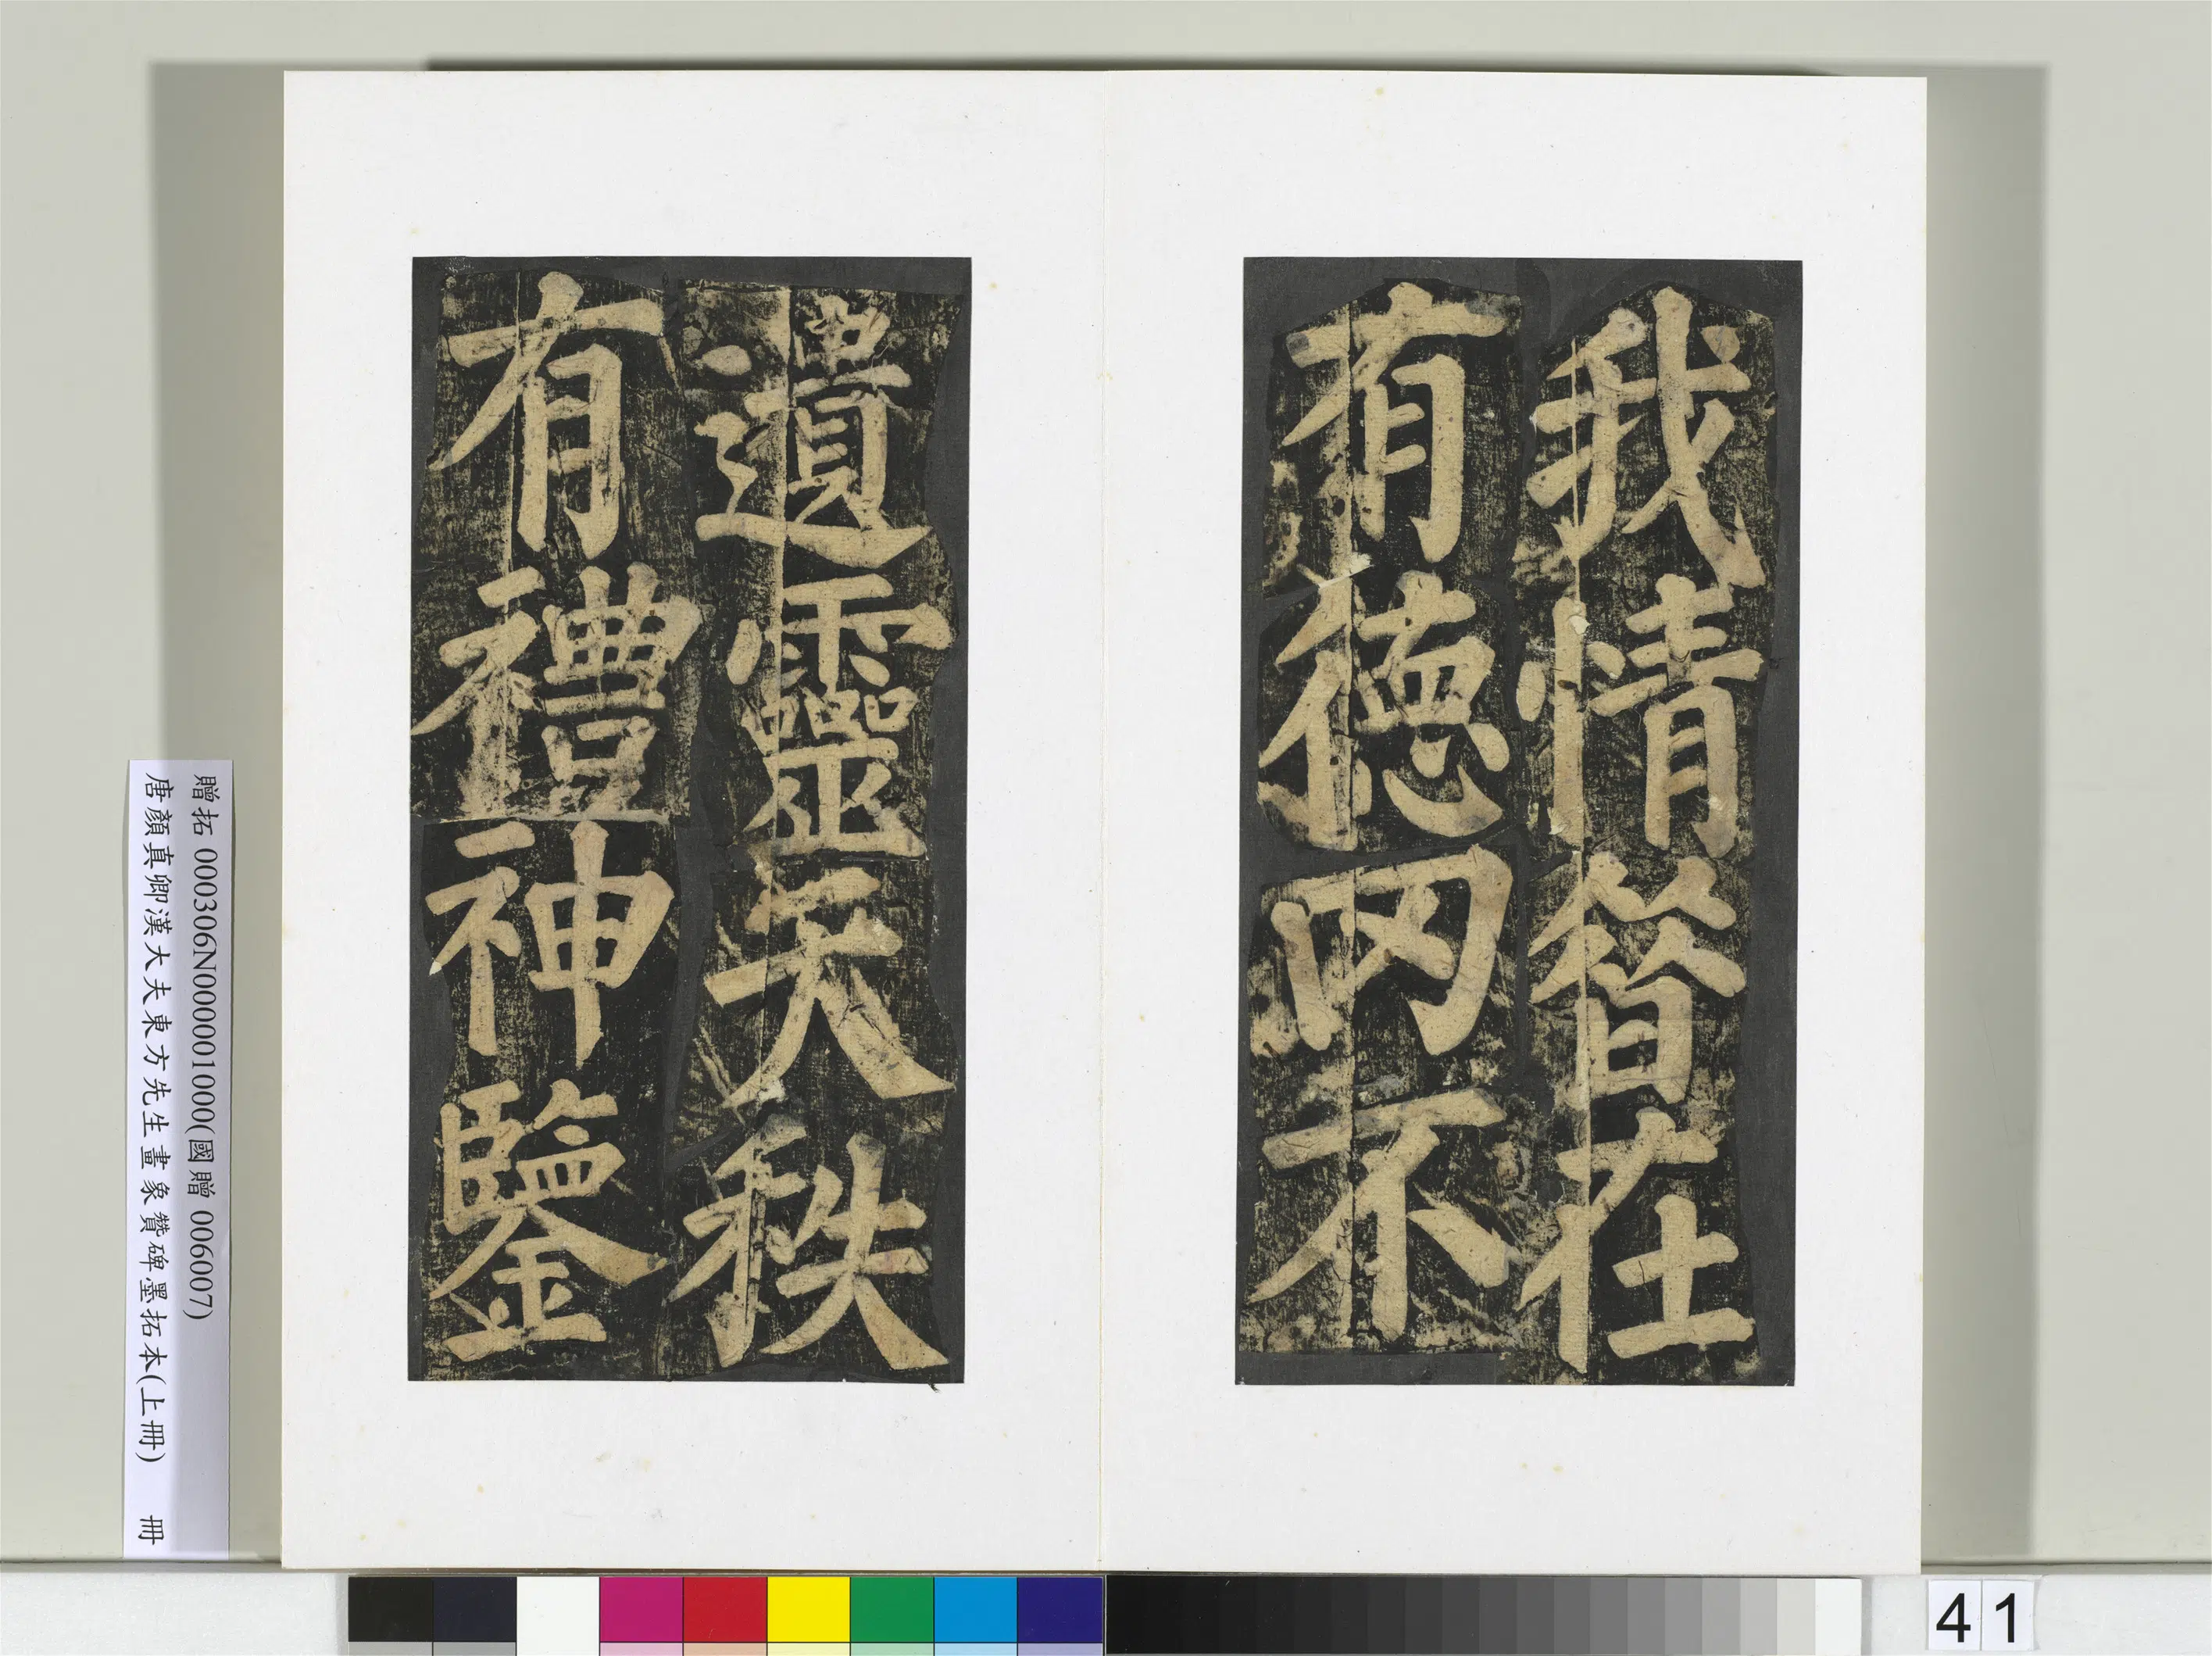 我情昔在
有德罔不
遺靈天秩
有禮神鑒
贈拓 000306N000001000(國贈 006007)
唐顏真卿漢大夫東方先生畫象贊碑墨拓本(上冊) 冊
41